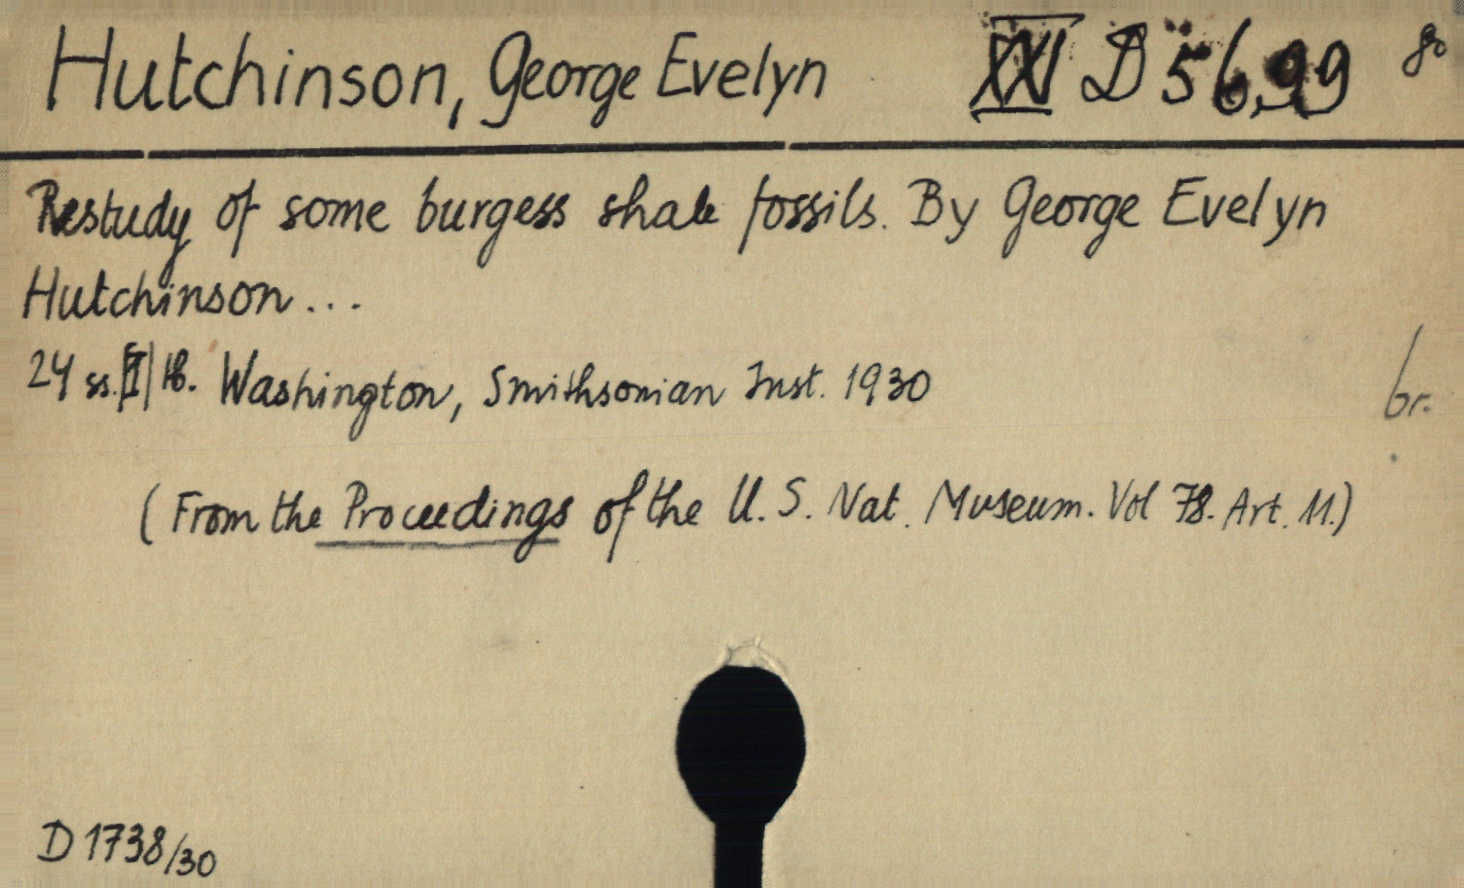 Hutchinson, George Evelyn XXI D 56,99 8o
Restudy of some burgess shale fossils. By George Evelyn
Hutchinson...
24 ss. [I] tb. Washington, Smithsonian Inst. 1930
br.
(From the Proceedings of the U. S. Nat. Museum. Vol 78. Art. 11.)
D 1738/30